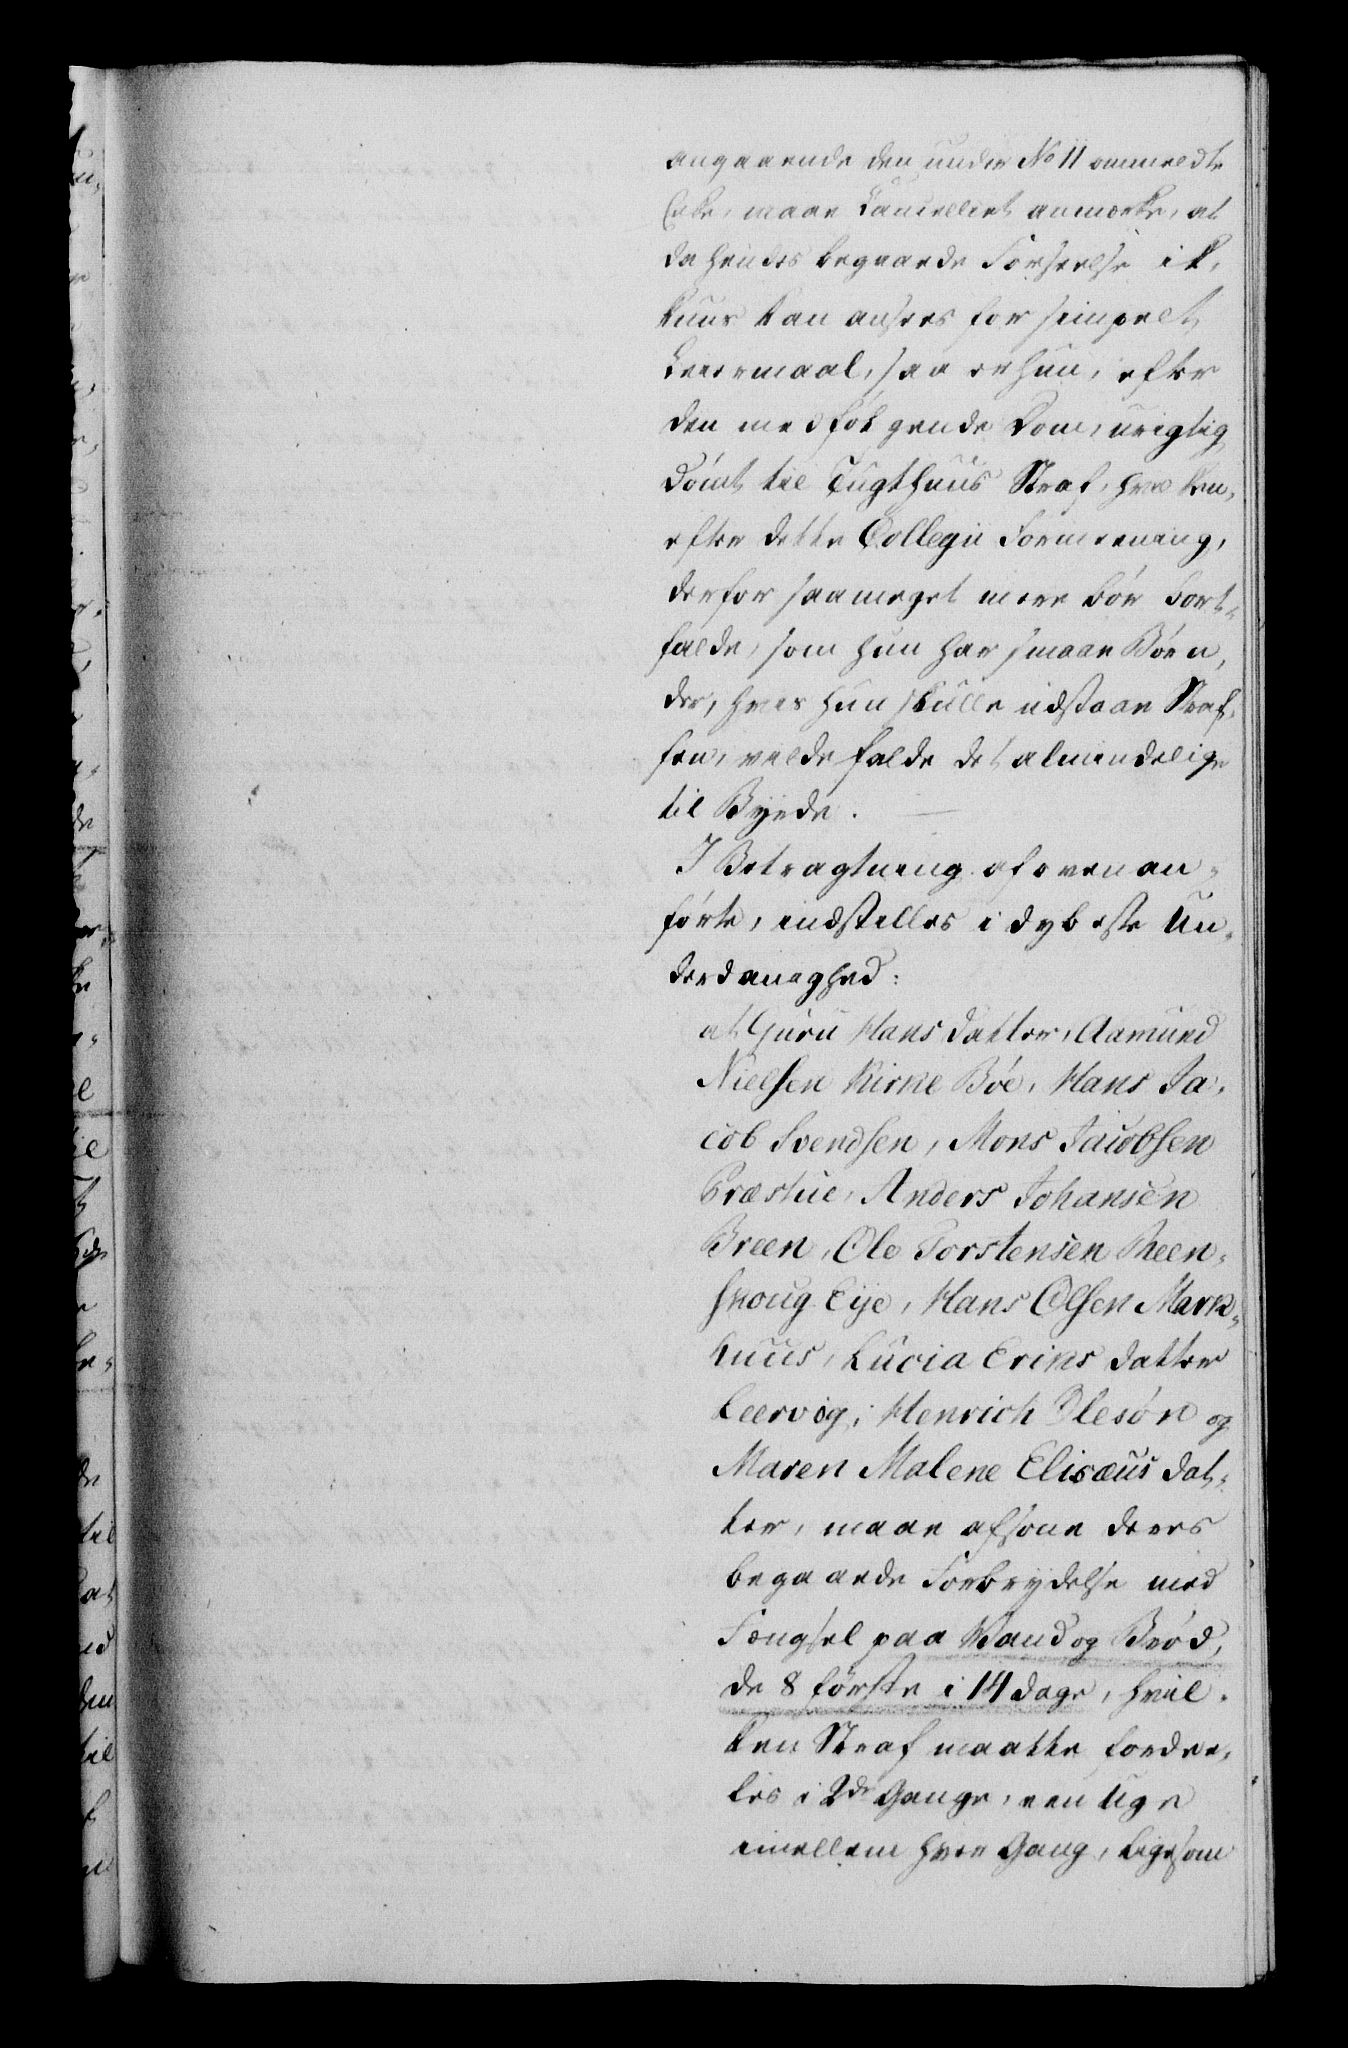 angaaende den under No 11 ommeldte
Enke, maae Cancelliet anmærke, at
da hendes begaaede Forseelse ik-
kuns kan ansees for simpelt
Leiermaal, saa er hun, efter
den medfølgende Dom, urigtig
dømt til Tugthuus Straf, hvilken,
efter dette Collegii Formeening,
derfor saameget mere bør bort-
falde, som hun har smaae Børn,
der, hvis hun skulle udstaae Straf-
fen, vilde falde det almindelige
til Byrde. —
I Betragtning af ovenan-
førte, indstilles i dybeste Un-
derdanighed:
at Guru Hans datter, Aamund
Nielsen Kirke Bøe, Hans Ja-
cob Svendsen, Mons Jacobsen
Præstue, Anders Johansen
Breen, Ole Torstensen Reen-
skoug Eije, Hans Olsen Mark-
huus, Lucia Eriks datter
Leervig, Henrich Olesøn og
Maren Malene Elisæus dat-
ter, maae afsone deres
begaaede Forbrydelse med
Fængsel paa Vand og Brød,
de 8 første i 14 dage, hvil-
ken Straf maatte fordee-
les i 2de Gange, een Uge
imellem hver Gang, ligesom